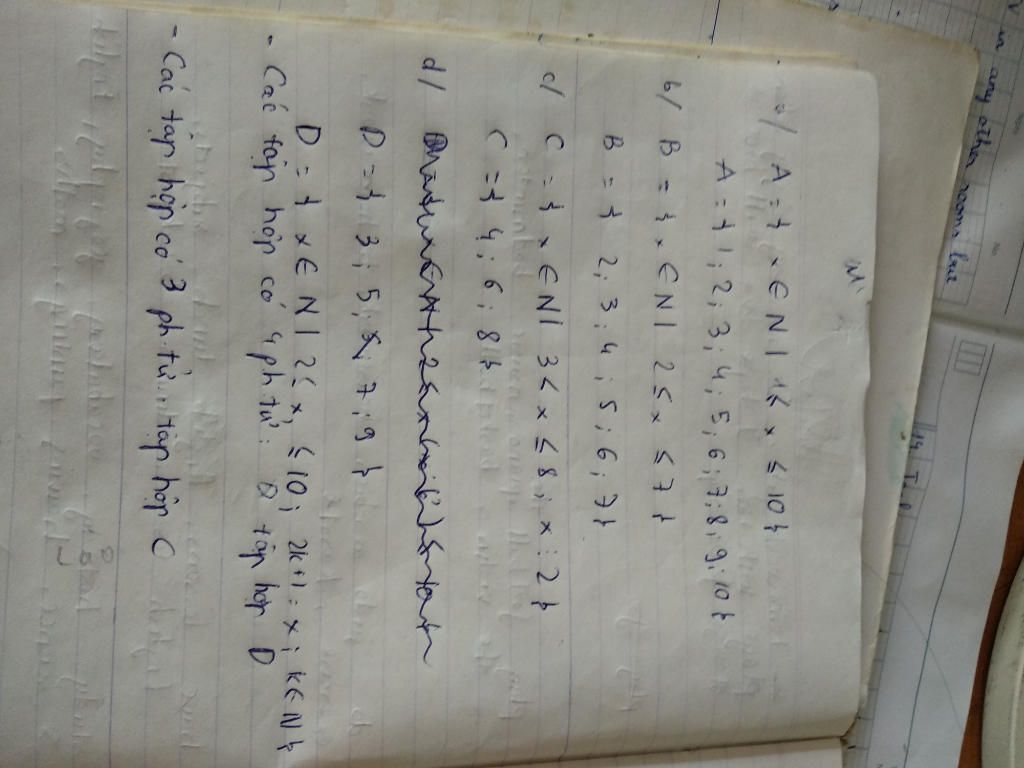 a/ A = { x ∈ N | 1 < x ≤ 10 }
A = { 1 ; 2 ; 3 ; 4 ; 5 ; 6 ; 7 ; 8 ; 9 ; 10 }
b/ B = { x ∈ N | 2 ≤ x ≤ 7 }
B = { 2 ; 3 ; 4 ; 5 ; 6 ; 7 }
c/ C = { x ∈ N | 3 < x ≤ 8 ; x ⋮ 2 }
C = { 4 ; 6 ; 8 }
d/
D = { 3 ; 5 ; 7 ; 9 }
D = { x ∈ N | 2 ≤ x ≤ 10 ; 2k+1 = x ; k ∈ N }
- Các tập hợp có 4 ph tử : tập hợp D
- Các tập hợp có 3 ph. tử : tập hợp C
in any other room